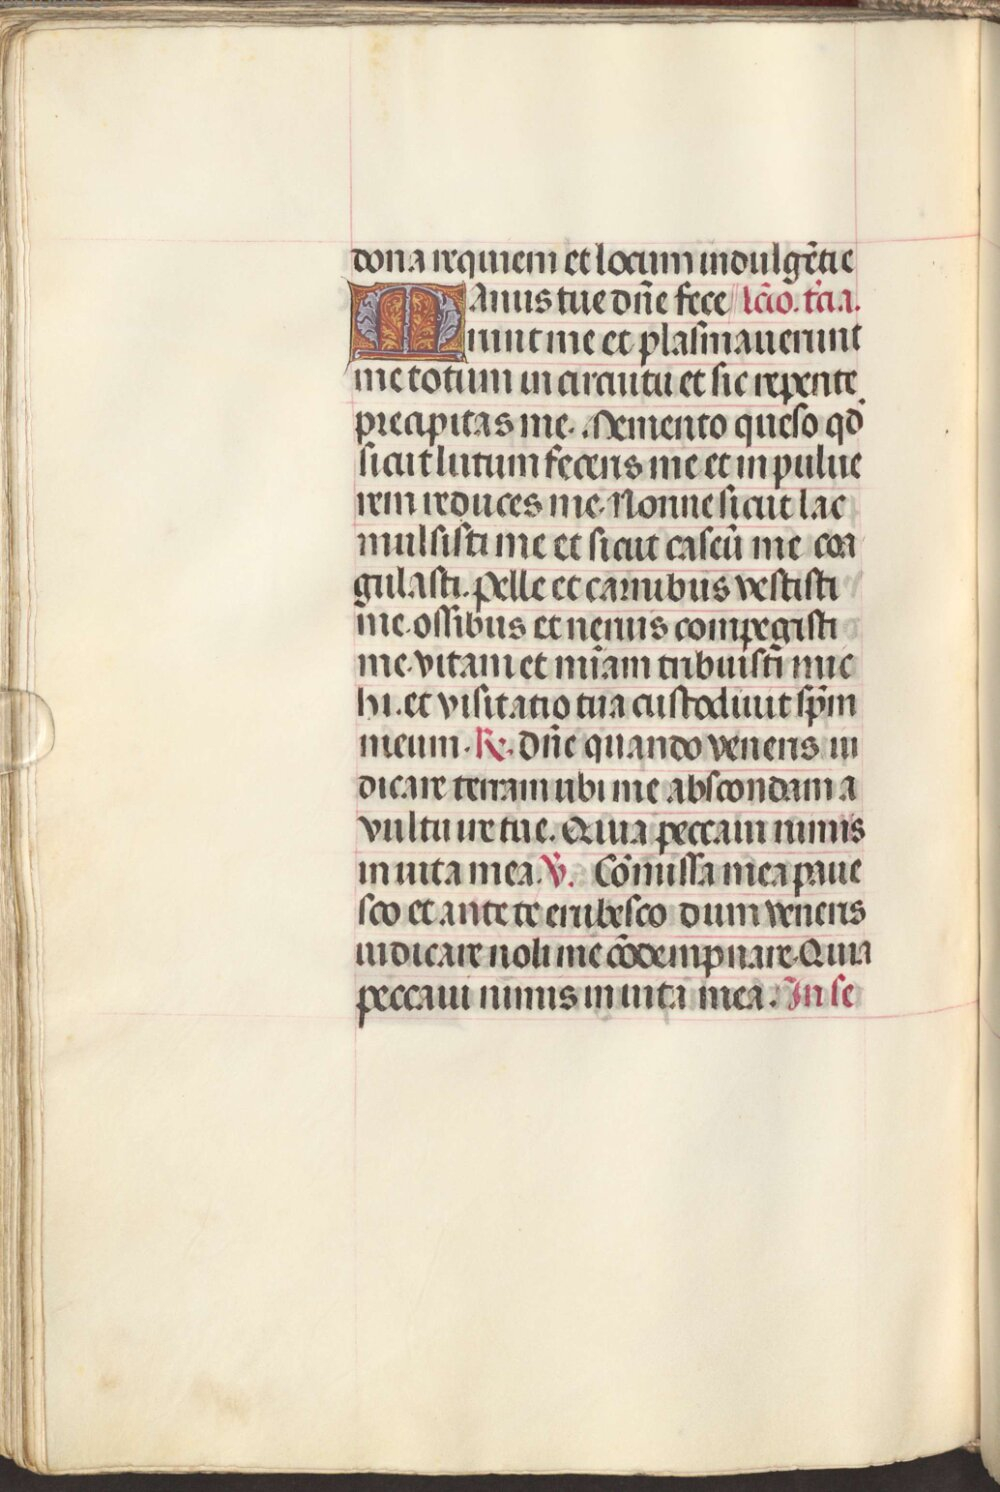 dona requiem et locum indulgẽtie
Manus tue dñe fece lc̃io. tc̃ia.
runt me et plasmauerunt
me totum in circuitu et sic repente
precipitas me. Memento queso qđ
sicut lutum feceris me et in pulue
rem reduces me. Nonne sicut lac
mulsisti me et sicut caseũ me coa
gulasti. Pelle et carnibus vestisti
me. ossibus et neruis compegisti
me. vitam et mĩam tribuisti mic
hi. et visitatio tua custodiuit sp̃m
meum. R. Dñe quando veneris iu
dicare terram ubi me abscondam a
vultu ire tue. Quia peccaui nimis
in uita mea. V. Cõmissa mea paue
sco et ante te erubesco dum veneris
iudicare noli me cõdempnare. Quia
peccaui nimis in uita mea. In se